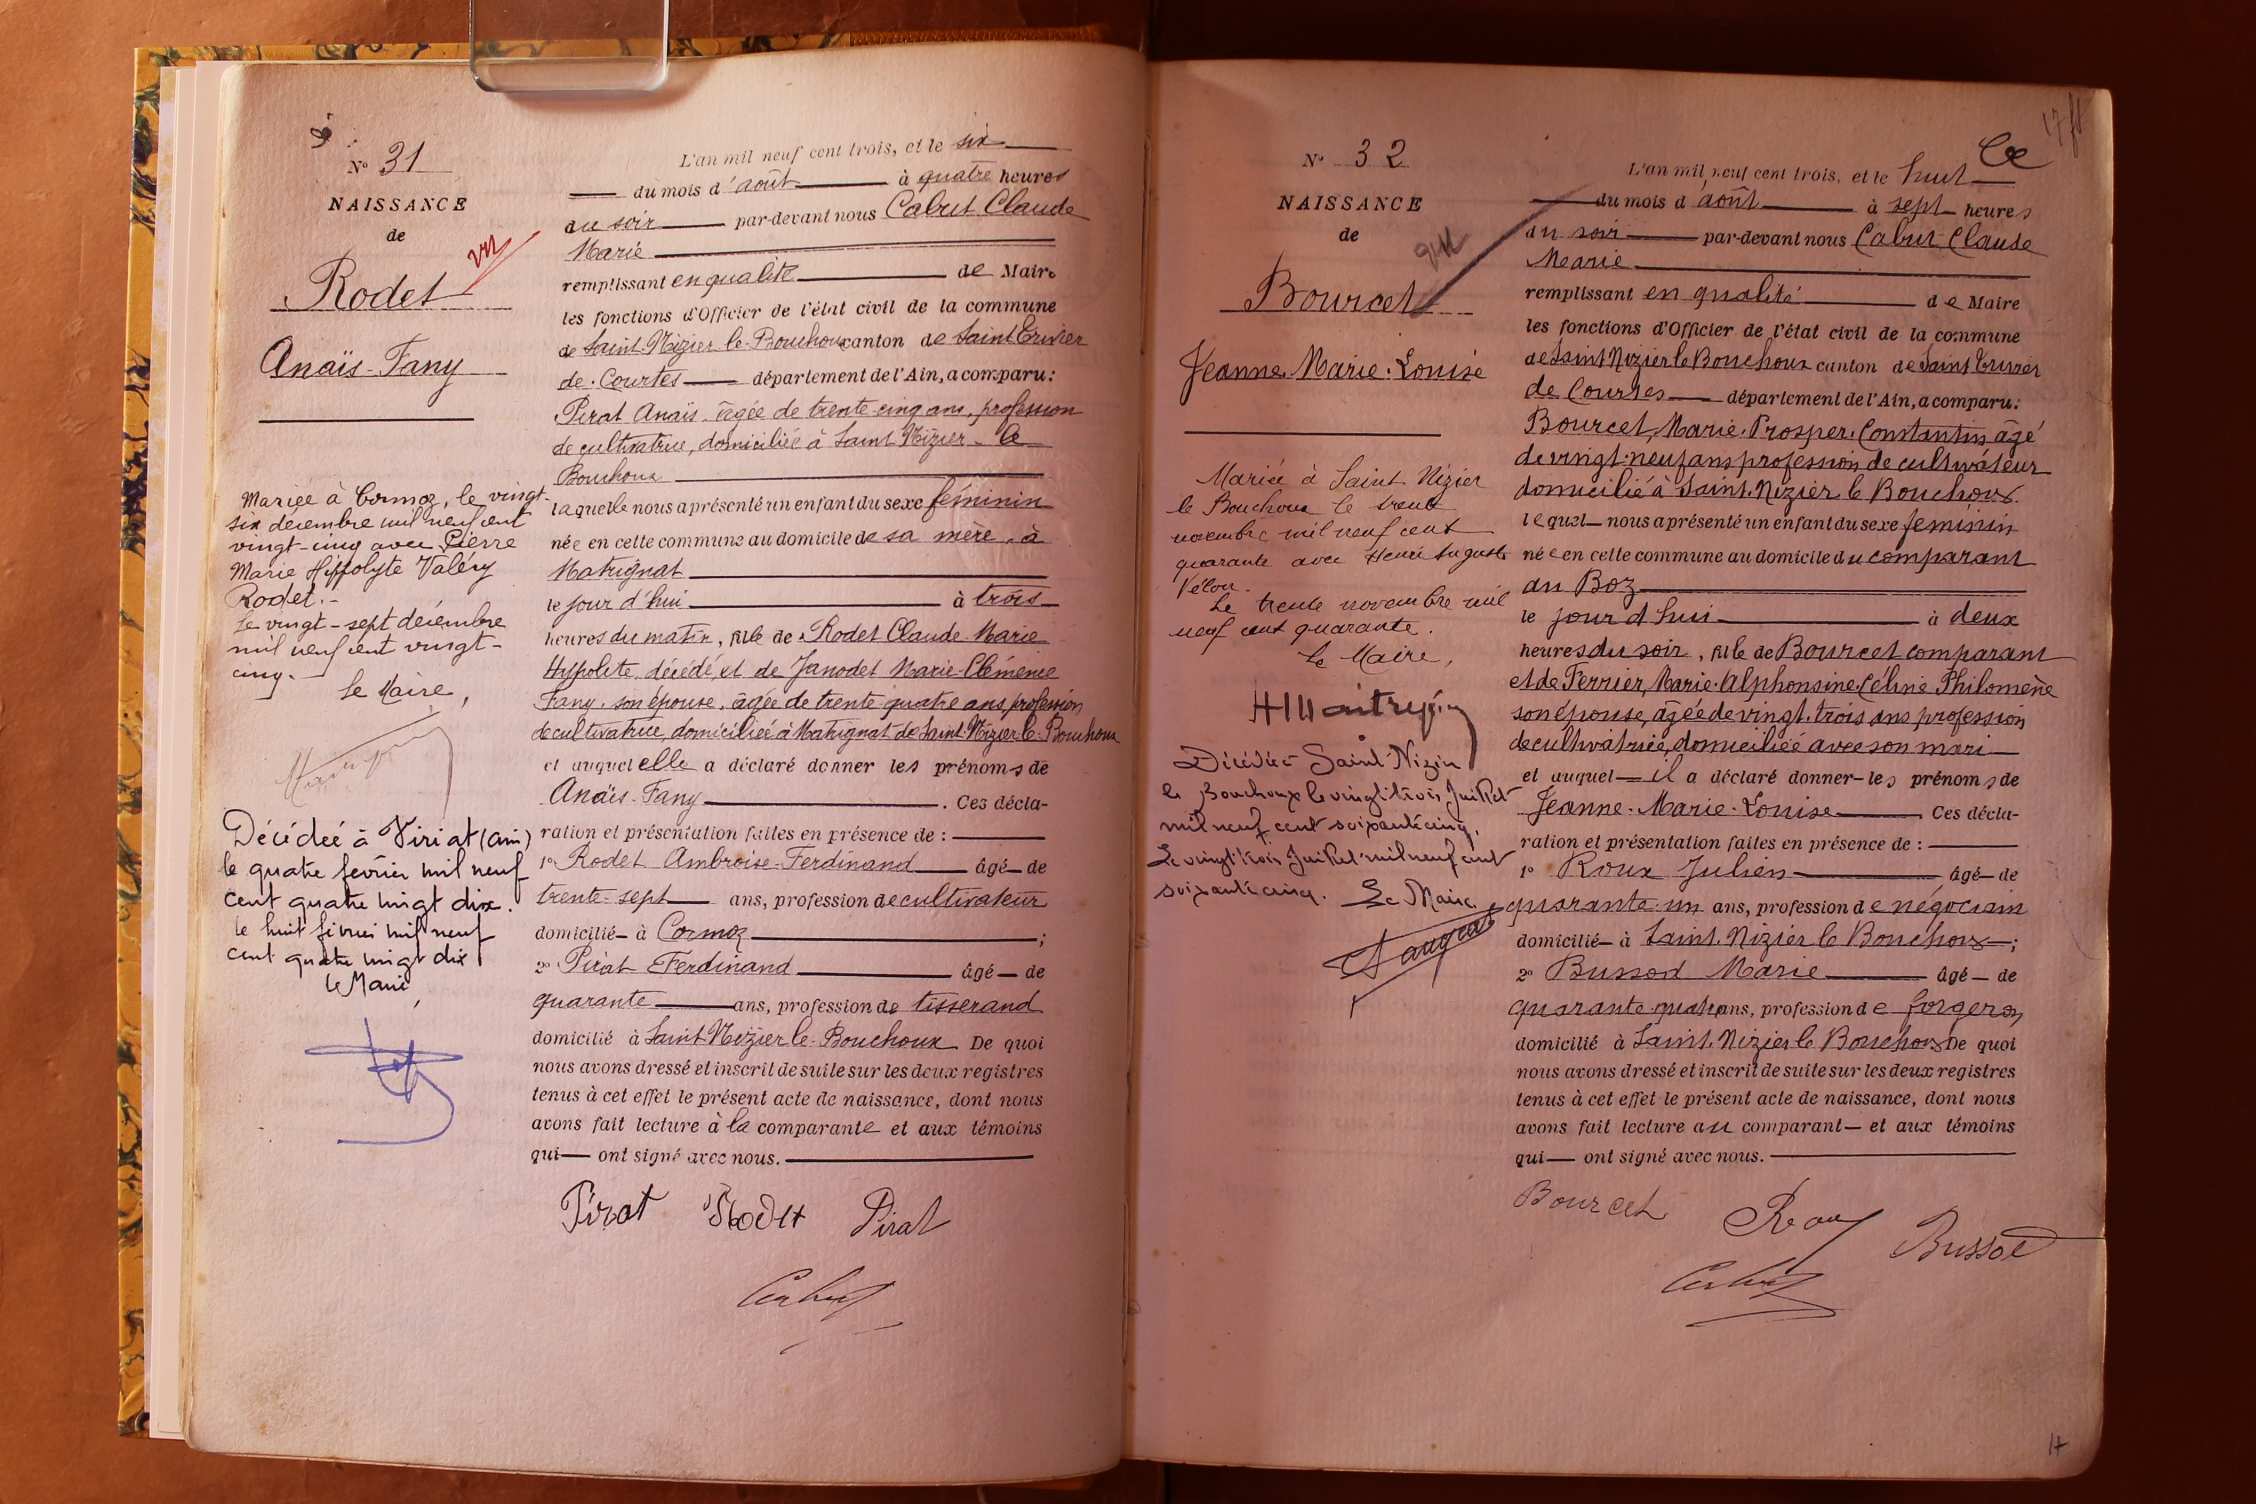 N° 31
NAISSANCE
de
Rodet
Anaïs-Fany
Mariée à Cormoz, le vingt-
six décembre mil neuf cent
vingt-cinq avec Pierre
Marie Hippolyte Valéry
Rodet.-
Le vingt-sept décembre
mil neuf cent vingt-
cinq.-
Le Maire,
Décédée à Viriat (Ain)
le quatre février mil neuf
cent quatre vingt dix.
le huit février mil neuf
cent quatre vingt dix
le Maire,
L'an mil neuf cent trois, et le six
du mois d'août à quatre heures
du soir par-devant nous Cabut Claude
Marie
remplissant en qualité de Maire
les fonctions d'Officier de l'état civil de la commune
de Saint-Nizier-le-Bouchoux canton de Saint Trivier
de Courtes département de l'Ain, a comparu:
Pirat Anaïs âgée de trente-cinq ans, profession
de cultivatrice, domiciliée à Saint Nizier-le
Bouhoux
laquelle nous a présenté un enfant du sexe féminin
née en cette commune au domicile de sa mère, à
Matrignat
le jour d'hui à trois
heures du matin, fille de Rodet Claude-Marie
Hyppolite, décédé et de Janodet Marie-Clémence
Fany, son épouse, âgée de trente-quatre ans, profession
de cultivatrice, domiciliée à Matrignat de Saint-Nizier-le-Bouchoux
et auquel elle a déclaré donner les prénoms de
Anaïs-Fany. Ces décla-
ration et présentation faites en présence de :
1° Rodet Ambroise-Ferdinand âgé de
trente-sept ans, profession de cultivateur
domicilié à Cormoz ;
2° Pirat Ferdinand âgé de
quarante ans, profession de tisserand
domicilié à Saint-Nizier-le-Bouchoux De quoi
nous avons dressé et inscrit de suite sur les deux registres
tenus à cet effet le présent acte de naissance, dont nous
avons fait lecture à la comparante et aux témoins
qui ont signé avec nous.
Pirat Rodet Pirat
Cabut
17
N° 32
NAISSANCE
de
Bourcet
Jeanne-Marie-Louise
Mariée à Saint Nizier
le Bouchoux le trente
novembre mil neuf cent
quarante avec Henri Auguste
Le trente novembre mil
neuf cent quarante.
Le Maire,
Décédée à Saint-Nizier
le Bouchoux le vingt trois Juillet
mil neuf cent soixante cinq.
Le vingt trois Juillet mil neuf cent
soixante cinq. Le Maire
L'an mil neuf cent trois, et le huit
du mois d'août à sept heures
du soir par-devant nous Cabut Claude
Marie
remplissant en qualité de Maire
les fonctions d'Officier de l'état civil de la commune
de Saint Nizier le Bouchoux canton de Saint Trivier
de Courtes département de l'Ain, a comparu:
Bourcet, Marie-Prosper-Constantin, âgé
de vingt-neuf ans, profession de cultivateur
domicilié à Saint-Nizier le Bouchoux
lequel nous a présenté un enfant du sexe féminin
née en cette commune au domicile du comparant
au Boz
le jour d'hui à deux
heures du soir, fille de Bourcet comparant
et de Ferrier, Marie-Alphonsine-Céline Philomène
son épouse, âgée de vingt-trois ans profession
de cultivatrice, domiciliée avec son mari
et auquel il a déclaré donner les prénoms de
Jeanne-Marie-Louise Ces décla-
ration et présentation faites en présence de :
1° Roux Julien âgé de
quarante-un ans, profession de négociant
domicilié à Saint-Nizier le Bouchoux ;
2° Bussod Marie âgé de
quarante-quatre ans, profession de forgeron
domicilié à Saint-Nizier le Bouchoux De quoi
nous avons dressé et inscrit de suite sur les deux registres
tenus à cet effet le présent acte de naissance, dont nous
avons fait lecture au comparant et aux témoins
qui ont signé avec nous.
Bourcet Roux Bussod
Cabut
17